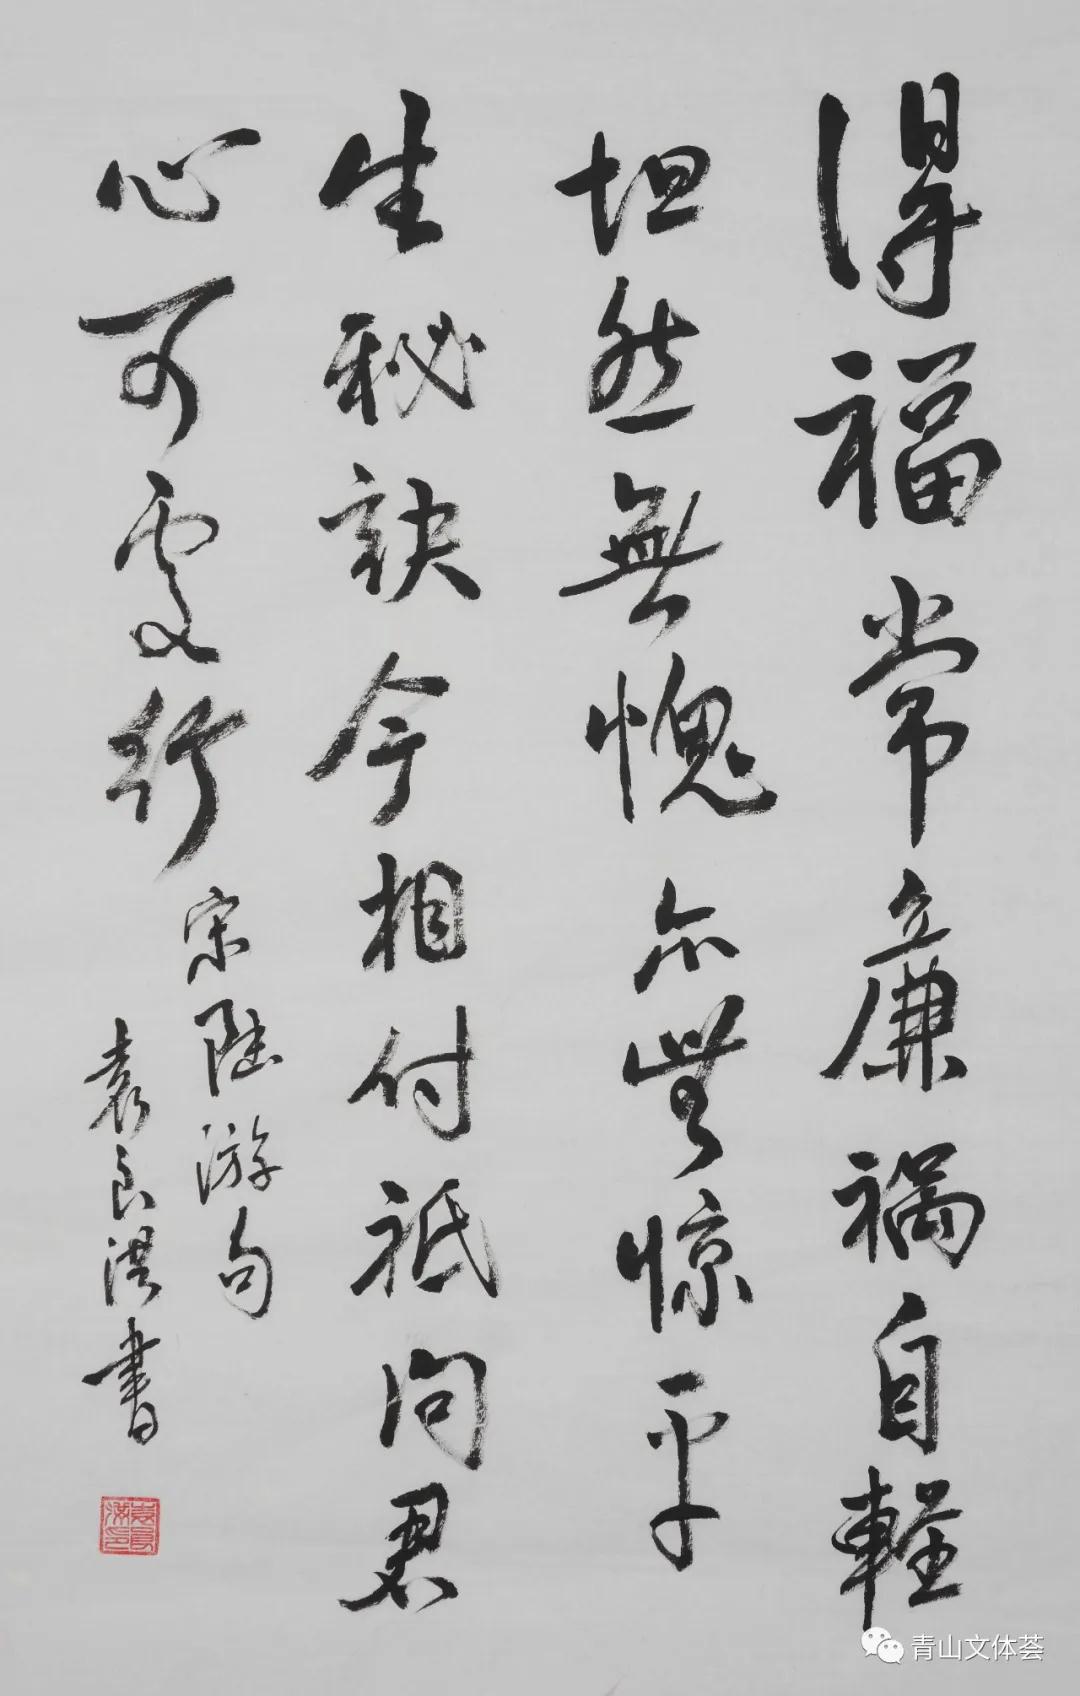 得福常廉禍自輕
坦然無愧亦無惊平
生秘訣今相付祇问君
心可處行
宋陆游句
袁良洪書
青山文体荟